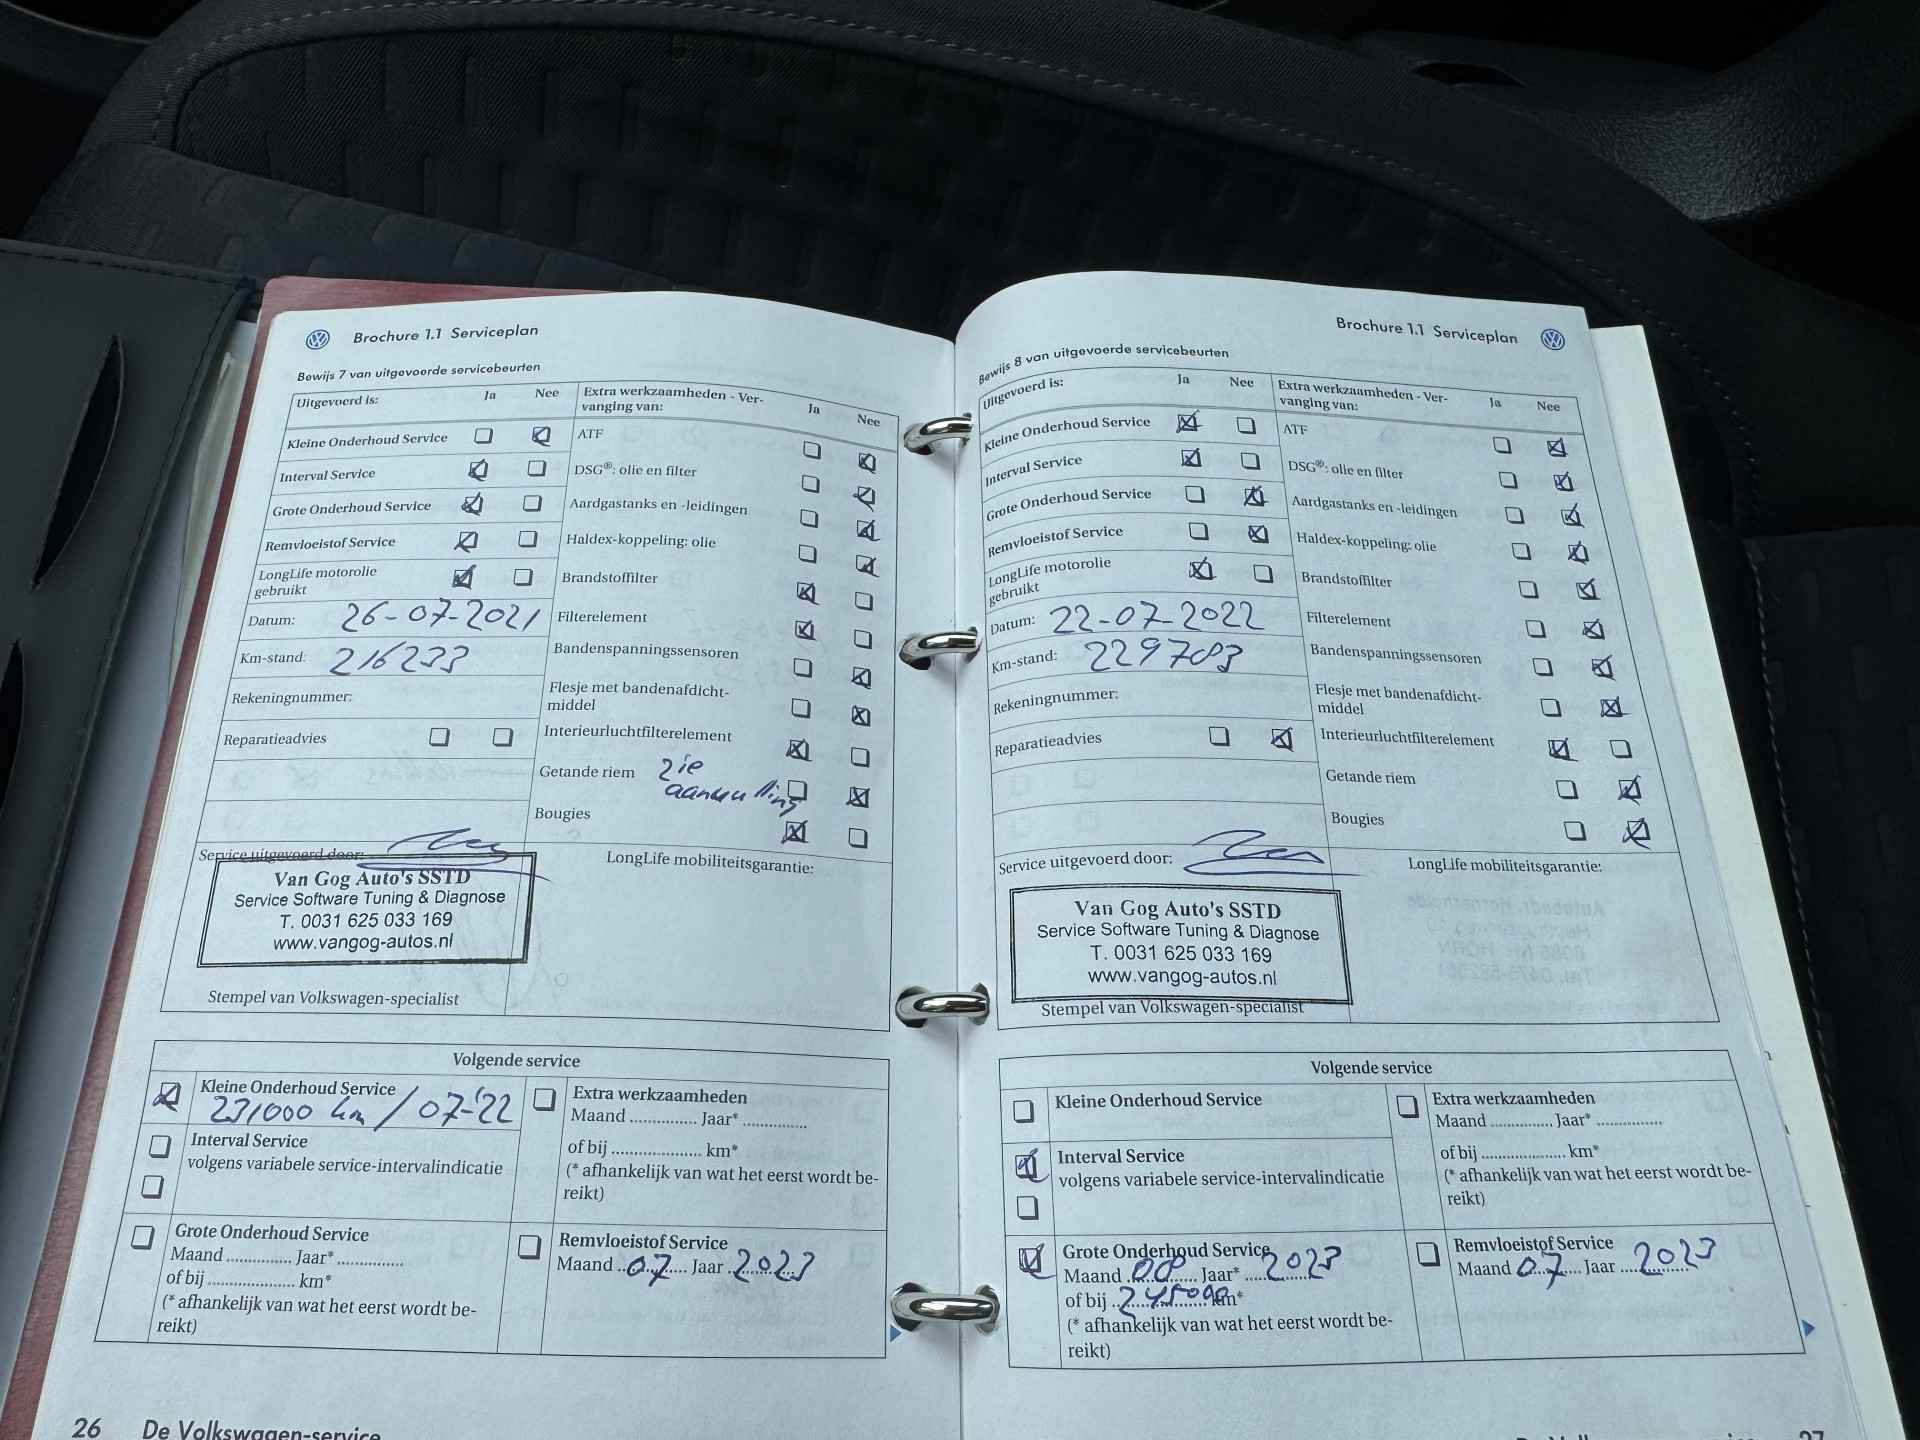 Brochure 1.1 Serviceplan
Bewijs 7 van uitgevoerde servicebeurten
Uitgevoerd is: Ja Nee
Kleine Onderhoud Service
Interval Service
Grote Onderhoud Service
Remvloeistof Service
LongLife motorolie
gebruikt
Datum: 26-07-2021
Km-stand: 216233
Rekeningnummer:
Reparatieadvies
Extra werkzaamheden - Ver-
vanging van: Ja Nee
ATF
DSG®: olie en filter
Aardgastanks en -leidingen
Haldex-koppeling: olie
Brandstoffilter
Filterelement
Bandenspanningssensoren
Flesje met bandenafdicht-
middel
Interieurluchtfilterelement
Getande riem zie
Bougies
Service uitgevoerd door:
Van Gog Auto's SSTD
Service Software Tuning & Diagnose
T. 0031 625 033 169
www.vangog-autos.nl
Stempel van Volkswagen-specialist
LongLife mobiliteitsgarantie:
Volgende service
Kleine Onderhoud Service
231000 km / 07-'22
Interval Service
volgens variabele service-intervalindicatie
Grote Onderhoud Service
Maand ............... Jaar* ...............
of bij .................... km*
(* afhankelijk van wat het eerst wordt be-
reikt)
Extra werkzaamheden
Maand ............... Jaar* ...............
of bij .................... km*
(* afhankelijk van wat het eerst wordt be-
reikt)
Remvloeistof Service
Maand 07 Jaar 2023
26 De Volkswagen-service
Brochure 1.1 Serviceplan
Bewijs 8 van uitgevoerde servicebeurten
Uitgevoerd is: Ja Nee
Kleine Onderhoud Service
Interval Service
Grote Onderhoud Service
Remvloeistof Service
LongLife motorolie
gebruikt
Datum: 22-07-2022
Km-stand: 229783
Rekeningnummer:
Reparatieadvies
Extra werkzaamheden - Ver-
vanging van: Ja Nee
ATF
DSG®: olie en filter
Aardgastanks en -leidingen
Haldex-koppeling: olie
Brandstoffilter
Filterelement
Bandenspanningssensoren
Flesje met bandenafdicht-
middel
Interieurluchtfilterelement
Getande riem
Bougies
Service uitgevoerd door:
Van Gog Auto's SSTD
Service Software Tuning & Diagnose
T. 0031 625 033 169
www.vangog-autos.nl
Stempel van Volkswagen-specialist
LongLife mobiliteitsgarantie:
Volgende service
Kleine Onderhoud Service
Interval Service
volgens variabele service-intervalindicatie
Grote Onderhoud Service
Maand 08 Jaar* 2023
of bij 245000 km*
(* afhankelijk van wat het eerst wordt be-
reikt)
Extra werkzaamheden
Maand ............... Jaar* ...............
of bij .................... km*
(* afhankelijk van wat het eerst wordt be-
reikt)
Remvloeistof Service
Maand 07 Jaar 2023